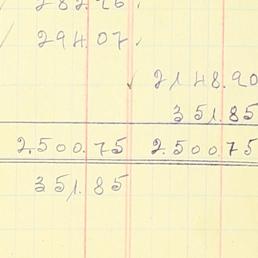 282.26
294.07
2148.90
351.85
2.500.75 2.500.75
351.85